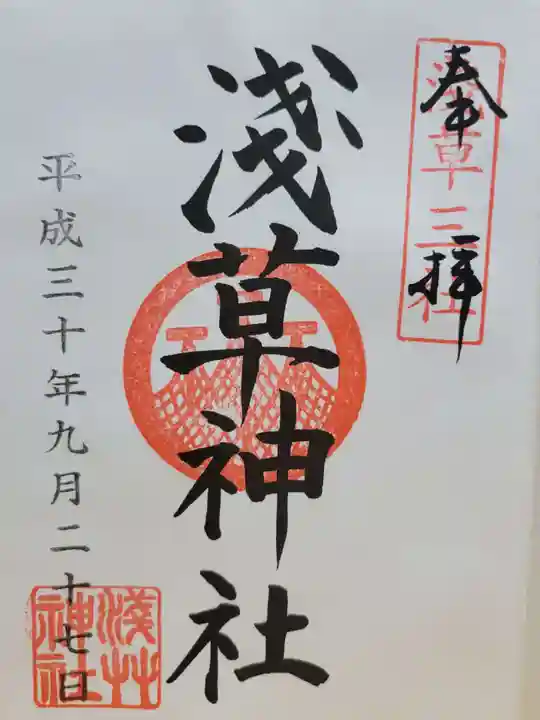 奉拝
淺草三社
淺草神社
平成三十年九月二十七日
淺艸神社